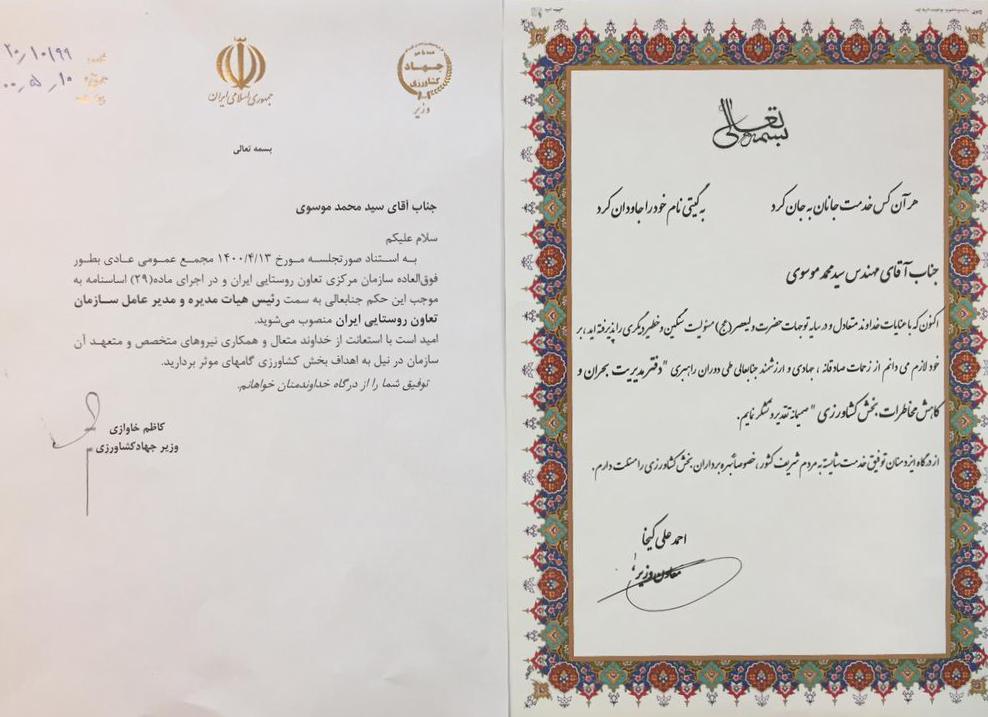 ۲۰/۱۰۱۹۹
۰۰/۵/۱۰
جمهوری اسلامی ایران
جهاد
کشاورزی
وزیر
بسمه تعالی
جناب آقای سید محمد موسوی
سلام علیکم
به استناد صورتجلسه مورخ ۱۴۰۰/۴/۱۳ مجمع عمومی عادی بطور
فوق‌العاده سازمان مرکزی تعاون روستایی ایران و در اجرای ماده(۲۹) اساسنامه به
موجب این حکم جنابعالی به سمت رئیس هیات مدیره و مدیر عامل سازمان
تعاون روستایی ایران منصوب می‌شوید.
امید است با استعانت از خداوند متعال و همکاری نیروهای متخصص و متعهد آن
سازمان در نیل به اهداف بخش کشاورزی گامهای موثر بردارید.
توفیق شما را از درگاه خداوندمنان خواهانم.
کاظم خاوازی
وزیر جهادکشاورزی
بسمه تعالی
هر آن کس خدمت جانان به جان کرد به گیتی نام خود را جاودان کرد
جناب آقای مهندس سید محمد موسوی
اکنون که با عنایات خداوند متعادل و در سایه توجهات حضرت ولیعصر (عج) مسئولیت سنگین و خطیر دیگری را پذیرفته اید، بر
خود لازم می دانم از زحمات صادقانه ، جهادی و ارزشمند جنابعالی طی دوران راهبری "دفتر مدیریت بحران و
کاهش مخاطرات بخش کشاورزی" صمیمانه تقدیر و تشکر نمایم.
از درگاه ایزد منان توفیق خدمت شایسته به مردم شریف کشور، خصوصاً بهره برداران بخش کشاورزی را مسئلت دارم.
احمد علی کیخا
معاون وزیر